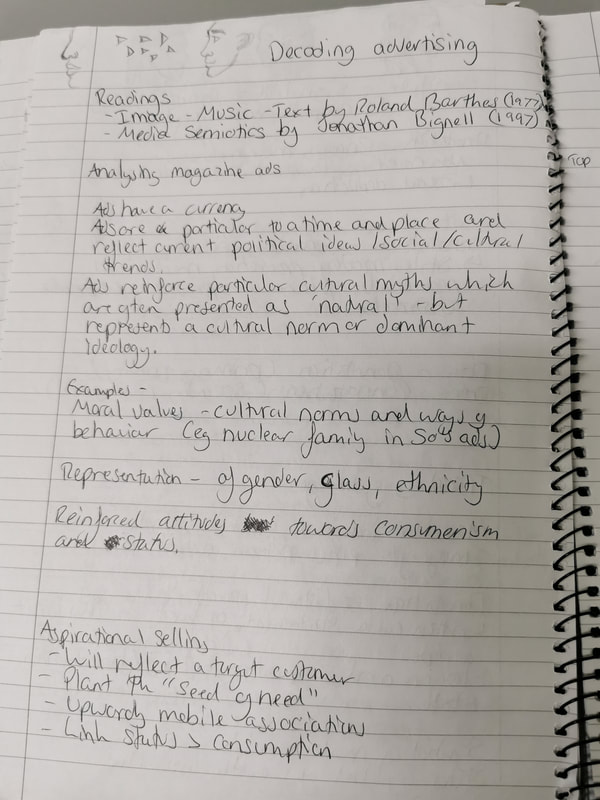 Decoding advertising
Readings
- Image - Music - Text by Roland Barthes (1977)
- Media Semiotics by Jonathan Bignell (1997)
Top
Analysing magazine ads
Ads have a currency
Ads are particular to a time and place and
reflect current political ideas / social / cultural /
trends.
Ads reinforce particular cultural myths which
are often presented as 'natural' - but
represents a cultural norm or dominant
ideology.
Examples -
Moral values - cultural norms and ways of
behaviour (eg nuclear family in 50s ads)
Representation - of gender, class, ethnicity
Reinforced attitudes towards consumerism
and status.
Aspirational selling
- Will reflect a target customer
- Plant th "seed of need"
- Upwardly mobile associations
- Link status > consumption